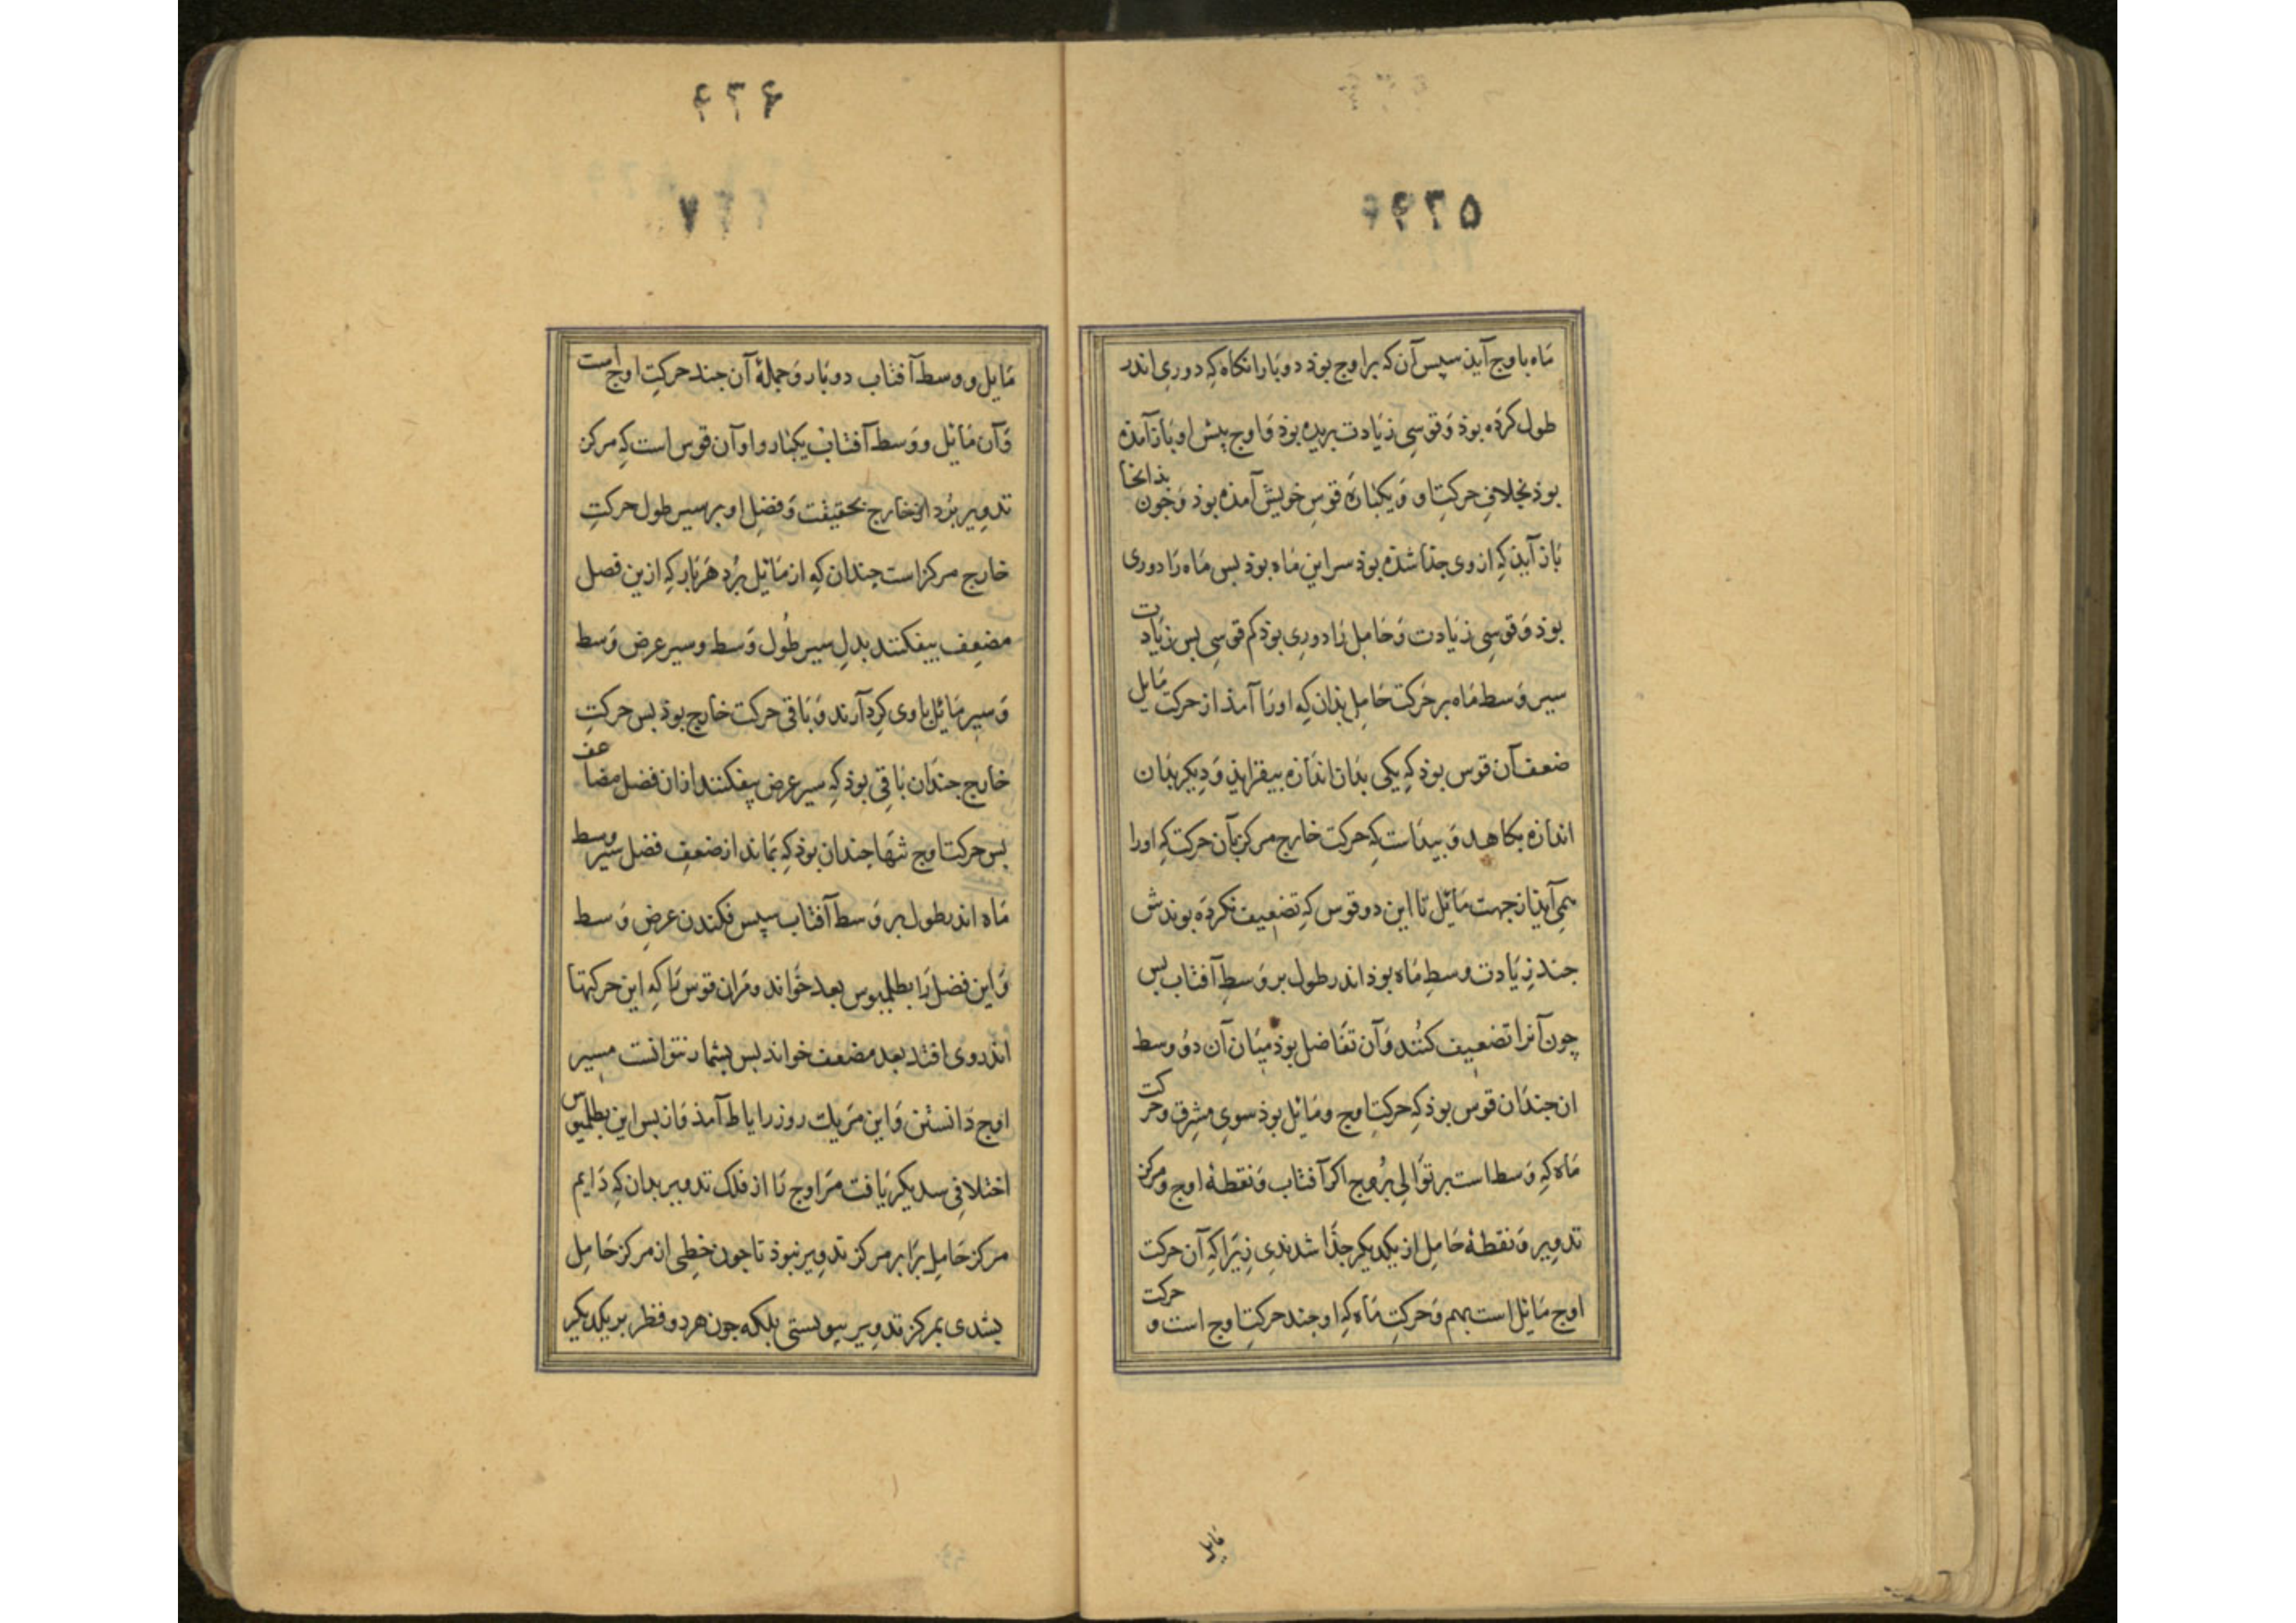 ۲۲۵
ماه با وج آیذ سپس آن که بر اوج بوذ دو بار انکاه که دوری اندر
طول کرده بوذ و قوسی زیادت بریده بوذ و اوج پیش او باز آمده
بوذ بخلاف حرکت او و یکباره قوس خویش آمده بوذ و جون بذانجا
باز آیذ که از وی جذا شذه بوذ سر این ماه بوذ بس ماه را دوری
بوذ و قوسی زیادت و حامل را دوری بوذ کم قوسی بس زیادت
سیر وسط ماه بر حرکت حامل بذان که او را آمذ از حرکت مایل
ضعف آن قوس بوذ که یکی بذان اندازه بیفزایذ و دیکر بذان
اندازه بکاهد و بیداست که حرکت خارج مرکز بآن حرکت که او را
همی آیذ از جهت مائل تا این دو قوس که تضعیف نکرده بوندش
جند زیادت وسط ماه بوذ اندر طول بر وسط آفتاب بس
چون آنرا تضعیف کنند و آن تفاضل بوذ میان آن دو وسط
ان جندان قوس بوذ که حرکت اوج و مائل بوذ سوی مشرق و حرکت
ماه که وسط است بر توالی بروج اکر آفتاب و نقطهٔ اوج و مرکز
تدویر و نقطهٔ حامل از یکدیکر جذا شدندی زیرا که آن حرکت
اوج مائل است بهم و حرکت ماه که او جند حرکت اوج است و حرکت
مایل
مایل و وسط آفتاب دو بار و جملهٔ آن جند حرکت اوج است
و آن مائل و وسط آفتاب یکبار و او آن قوس است که مرکز
تدویر برد از خارج بحقیقت و فضل او بر سیر طول حرکت
خارج مرکز است جندان که از مائل برد هر بار که ازین فصل
مضعف بیفکنند بدل سیر طول وسط و سیر عرض وسط
و سیر مائل با وی کرد آرند و باقی حرکت خارج بوذ بس حرکت
خارج جندان باقی بوذ که سیر عرض بیفکنند از ان فضل مضاعف
بس حرکت اوج تنها جندان بوذ که بماند از ضعف فضل سیر وسط
ماه اندر طول بر وسط آفتاب سپس فکندن عرض وسط
و این فضل را بطلمیوس بعد خواند و مران قوس را که این حرکتها
اندر وی افتد بعد مضعف خواند بس بشمار نتوانست مسیر
اوج دانستن و این مریك روز را یا ط آمذ و از بس این بطلمیوس
اختلافی سدیکر یافت مر اوج را از فلک تدویر بدان که دایم
مرکز حامل برابر مرکز تدویر نبوذ تا جون خطی از مرکز حامل
بشدی بمرکز تدویر بیوستی بلکه جون هر دو قطر بر یکدیکر